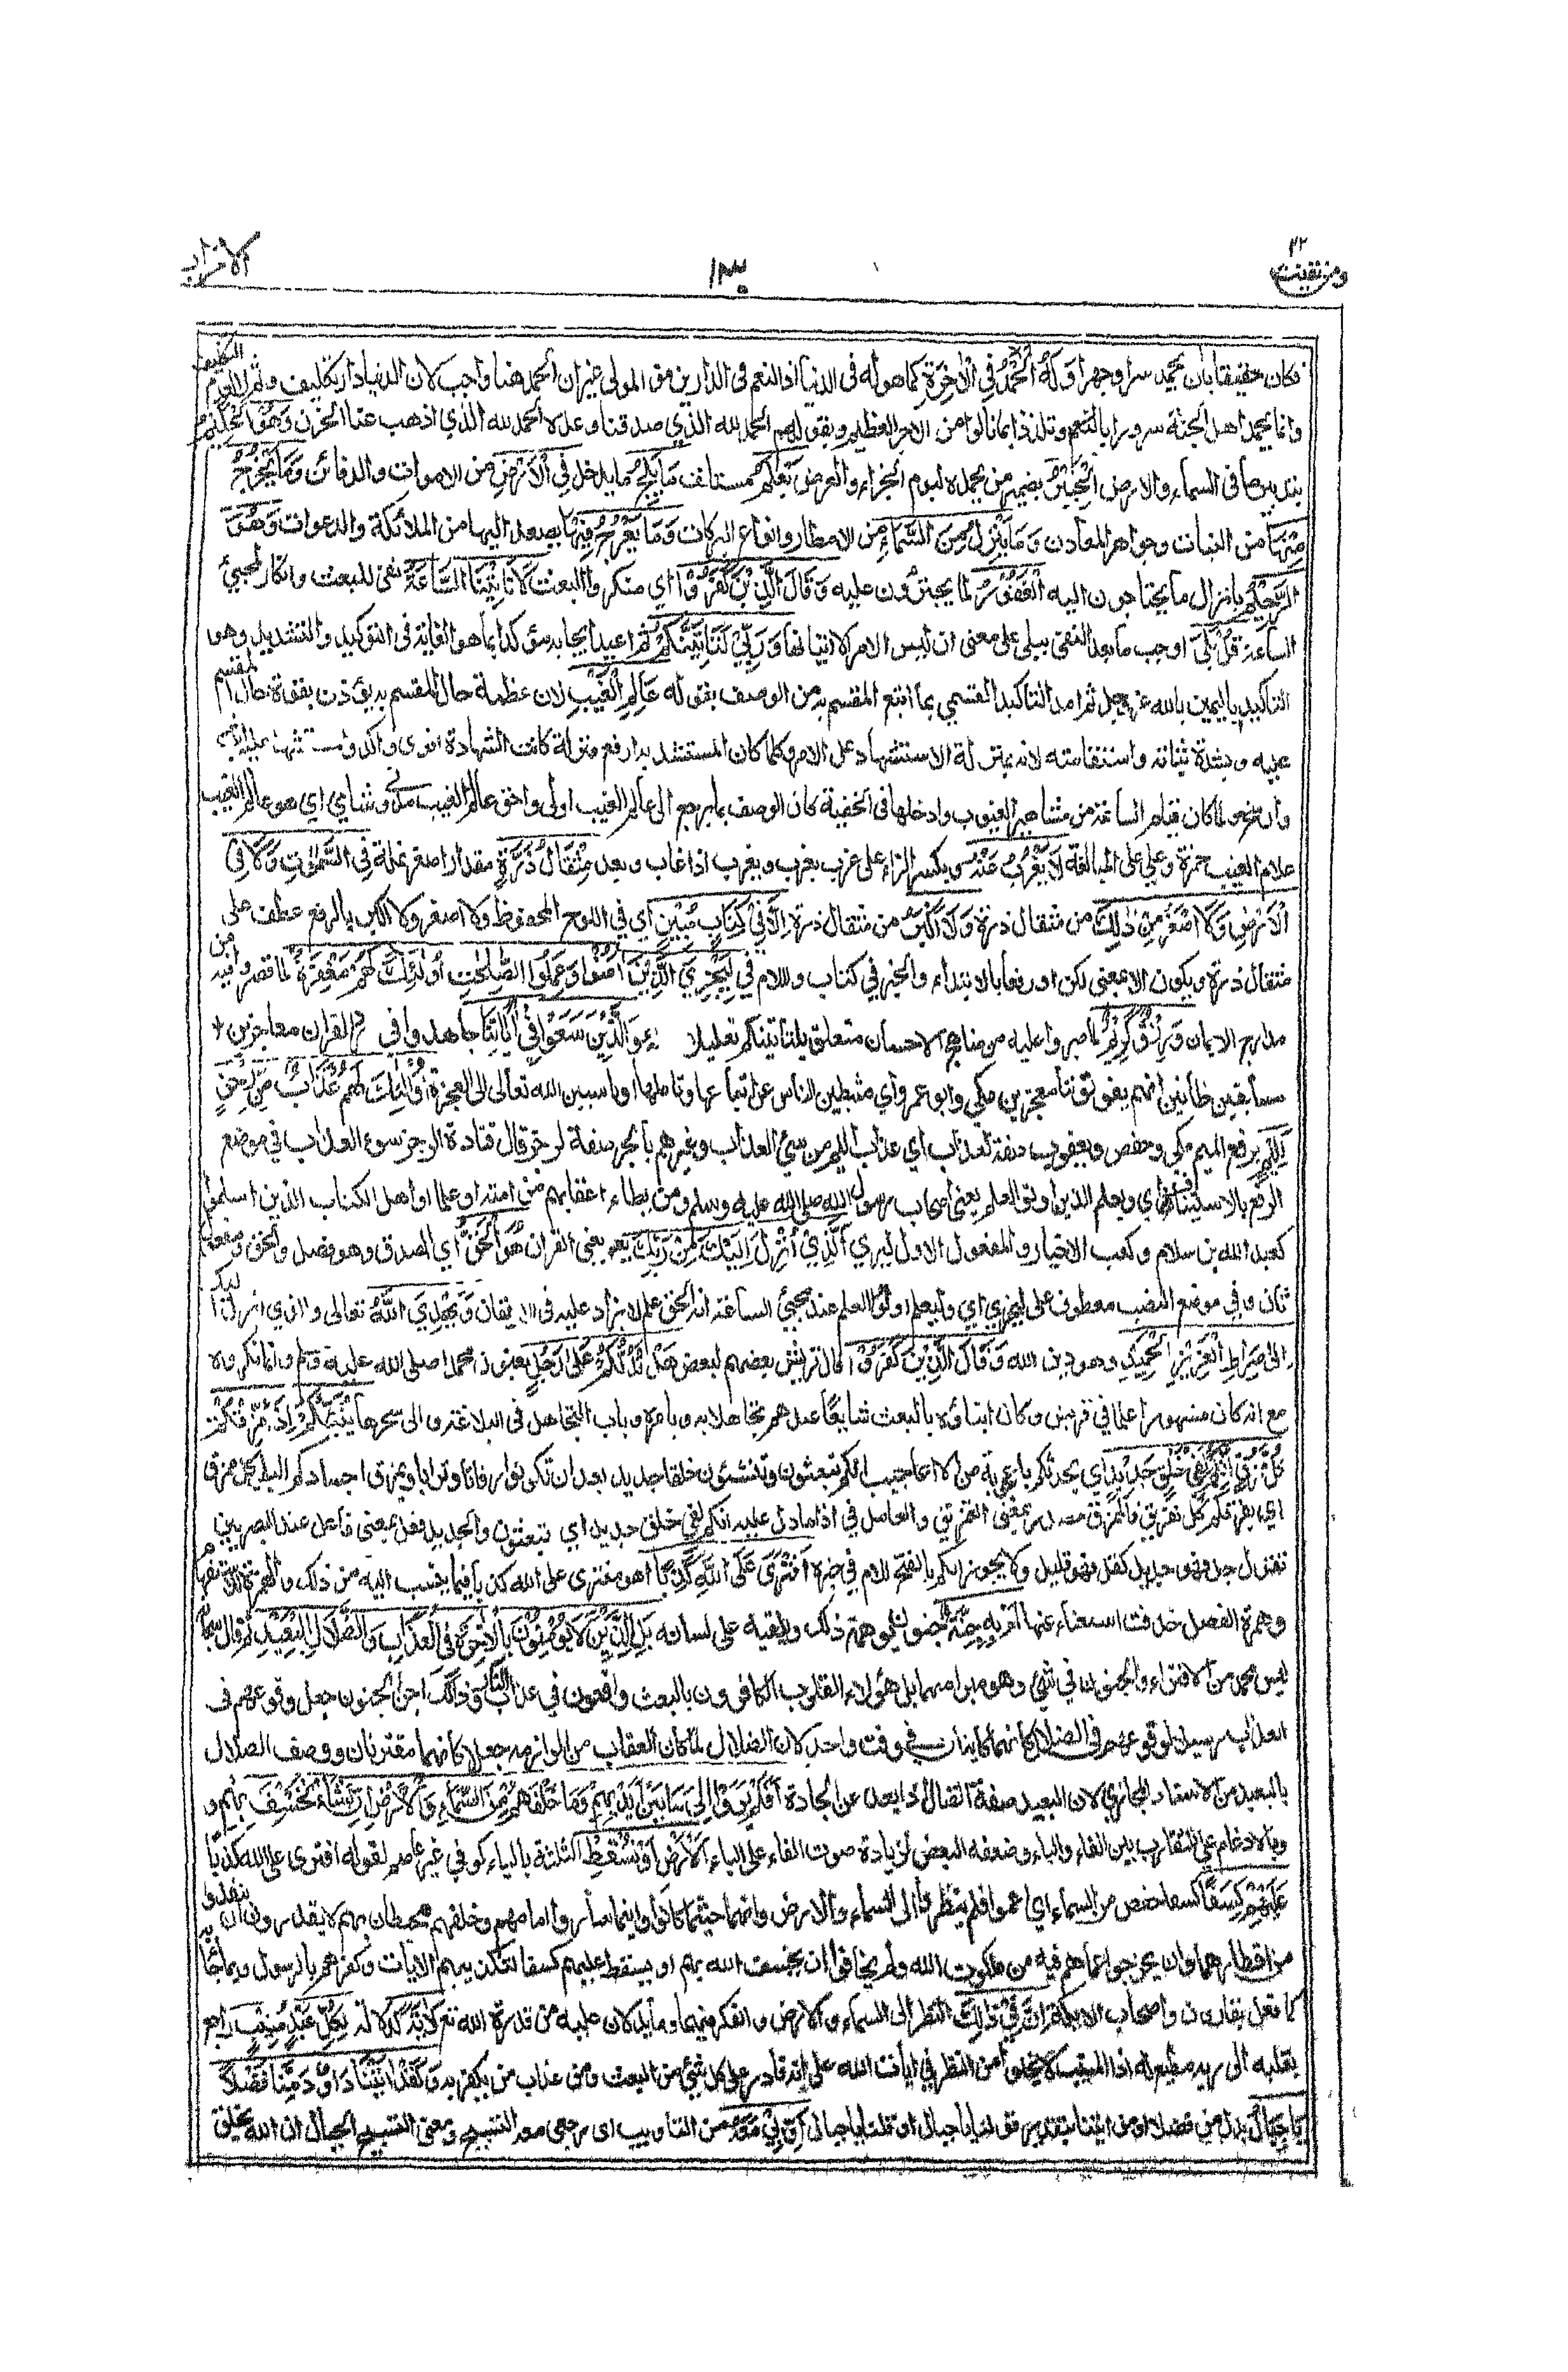 ومن يقنت ٢٢
١٣٠
الاحزاب
فكان حقيقا بان يحمد سرا وجهرا وَلَهُ الْحَمْدُ فِي الْاٰخِرَةِ كما هو له فى الدنيا اذ النعم فى الدارين من المولى غير ان الحمد هنا واجب لان الدنيا دار تكليف وثم لا لعدم التكليف
وانما يحمد اهل الجنة سرورا بالنعيم وتلذذا بما نالوا من الاجر العظيم وبقولهم الحمد لله الذي صدقنا وعده الحمد لله الذي اذهب عنا الحزن وَهُوَ الْحَكِيْمُ
بتدبير ما فى السماء والارض الْخَبِيْرُ بضمير من يحمده ليوم الجزاء والعرض يَعْلَمُ مستانف مَا يَلِجُ ما يدخل فِي الْاَرْضِ من الاموات والدفائن وَمَا يَخْرُجُ
مِنْهَا من النبات وجواهر المعادن وَمَا يَنْزِلُ مِنَ السَّمَاءِ من الامطار وانواع البركات وَمَا يَعْرُجُ فِيْهَا يصعد اليها من الملائكة والدعوات وَهُوَ
الرَّحِيْمُ بانزال ما يحتاجون اليه الْغَفُوْرُ لما يجترؤن عليه وَقَالَ الَّذِيْنَ كَفَرُوْا اي منكروا البعث لَا تَاْتِيْنَا السَّاعَةُ نفى للبعث وانكار لمجيئ
الساعة قُلْ بَلٰى اوجب ما بعد النفى ببلى على معنى ان ليس الامر الا اتيانها وَرَبِّيْ لَتَاْتِيَنَّكُمْ ثم اعيد ايجابه مؤكدا بما هو الغاية فى التوكيد والتشديد وهو
التاكيد باليمين بالله عز وجل ثم امد التاكيد القسمي بما اتبع المقسم به من الوصف بقوله عَالِمِ الْغَيْبِ لان عظمة حال المقسم به يؤذن بقوة حال المقسم
عليه وبشدة ثباته واستقامته لانه بمنزلة الاستشهاد على الامر وكلما كان المستشهد به ارفع منزلة كانت الشهادة اقوى واكد والمستشهد عليه اثبت
وارسخ ولما كان قيام الساعة من مشاهير الغيوب وادخلها فى الخفية كان الوصف بما يرجع الى عالم الغيب اولى واحق عالم الغيب مدني وشامي اي هو عالم الغيب
علام الغيب حمزة وعلي على المبالغة لَا يَعْزُبُ عَنْهُ وبكسر الزاء علي عزب يعزب ويعزب اذا غاب وبعد مِثْقَالُ ذَرَّةٍ مقدار اصغر نملة فِي السَّمٰوٰتِ وَلَا فِي
الْاَرْضِ وَلَا اَصْغَرُ مِنْ ذٰلِكَ من مثقال ذرة وَلَا اَكْبَرُ من مثقال ذرة اِلَّا فِيْ كِتَابٍ مُّبِيْنٍ اي في اللوح المحفوظ ولا اصغر ولا اكبر بالرفع عطف على
مثقال ذرة ويكون الا بمعنى لكن او رفعا بالابتداء والخبر في كتاب واللام في لِيَجْزِيَ الَّذِيْنَ اٰمَنُوْا وَعَمِلُوا الصّٰلِحٰتِ اُولٰئِكَ لَهُمْ مَغْفِرَةٌ لما قصروا فيه من
مدارج الايمان وَرِزْقٌ كَرِيْمٌ لما صبروا عليه من مناهج الاحسان متعلق بلتاتينكم تعليلا له وَالَّذِيْنَ سَعَوْا فِيْ اٰيَاتِنَا جاهدوا في رد القران معاجزين
مسابقين ظانين انهم يفوتوننا معجزين مكي وابو عمرو اي مثبطين الناس عن اتباعها وتاملها او ناسبين الله تعالى الى العجز اُولٰئِكَ لَهُمْ عَذَابٌ مِّنْ رِّجْزٍ
اَلِيْمٌ برفع الميم مكي وحفص ويعقوب صفة لعذاب اي عذاب اليم من سيئ العذاب وغيرهم بالجر صفة لرجز قال قتادة الرجز سوء العذاب ويرى في موضع
الرفع بالاستيناف اي ويعلم الذين اوتوا العلم يعني اصحاب رسول الله صلى الله عليه وسلم ومن يطاء اعقابهم من امته او علماء اهل الكتاب الذين اسلموا
كعبد الله بن سلام وكعب الاحبار والمفعول الاول ليرى الَّذِيْ اُنْزِلَ اِلَيْكَ مِنْ رَبِّكَ يعنى القران هُوَ الْحَقَّ اي الصدق وهو فصل والحق مفعول
ثان او في موضع النصب معطوف على ليجزي اي وليعلم اولوا العلم عند مجيئ الساعة انه الحق علما لا يزاد عليه فى الايقان وَيَهْدِيَ اللّٰهُ تعالى والذي انزل اليك
اِلٰى صِرَاطِ الْعَزِيْزِ الْحَمِيْدِ وهو دين الله وَقَالَ الَّذِيْنَ كَفَرُوْا قال قريش بعضهم لبعض هَلْ نَدُلُّكُمْ عَلٰى رَجُلٍ يعنون محمدا صلى الله عليه وسلم وانما نكروه
مع انه كان مشهورا علما في قريش وكان انباؤه بالبعث شايعا عندهم تجاهلا به وبامره وباب التجاهل فى البلاغة والى سحرها يُنَبِّئُكُمْ اِذَا مُزِّقْتُمْ
كُلَّ مُمَزَّقٍ اِنَّكُمْ لَفِيْ خَلْقٍ جَدِيْدٍ اي يحدثكم باعجوبة من الاعاجيب انكم تبعثون وتنشئون خلقا جديدا بعد ان تكونوا رفاتا وترابا ويمزق اجسادكم البلى كل ممزق
اي يفرقكم كل تفريق فالممزق مصدر بمعنى التمزيق والعامل في اذا ما دل عليه انكم لفي خلق جديد اي تبعثون والجديد فعيل بمعنى فاعل عند البصريين
تقول جد فهو جديد كقل فهو قليل ولا يجوز انكم بالفتح للام في خبره اَفْتَرٰى عَلَى اللّٰهِ كَذِبًا اهو مفتر على الله كذبا فيما ينسب اليه من ذلك والهمزة للاستفهام
وهمزة الوصل حذفت استغناء عنها اَمْ بِهِ جِنَّةٌ جنون يوهمه ذلك ويلقيه على لسانه بَلِ الَّذِيْنَ لَا يُؤْمِنُوْنَ بِالْاٰخِرَةِ فِي الْعَذَابِ وَالضَّلَالِ الْبَعِيْدِ ثم قال سبحانه
ليس محمد من الافتراء والجنون في شئ وهو مبرأ منهما بل هؤلاء القائلون الكافرون بالبعث واقعون في عذاب النار وذلك اجن الجنون جعل وقوعهم فى
العذاب رسيلا لوقوعهم فى الضلال كانهما كاينان في وقت واحد لان الضلال لما كان العقاب من لوازمه جعلا كانهما مقترنان ووصف الضلال
بالبعيد من الاسناد المجازي لان البعيد صفة الضال اذا بعد عن الجادة اَفَلَمْ يَرَوْا اِلٰى مَا بَيْنَ اَيْدِيْهِمْ وَمَا خَلْفَهُمْ مِنَ السَّمَاءِ وَالْاَرْضِ اِنْ نَشَاْ نَخْسِفْ بِهِمُ
وبالادغام علي للتقارب بين الفاء والباء وضعفه البعض لزيادة صوت الفاء على الباء الْاَرْضَ اَوْ نُسْقِطْ الثلثة بالياء كوفي غير عاصم لقوله افترى على الله كذبا
عَلَيْهِمْ كِسَفًا كسفا حفص من السماء اي اعموا فلم ينظروا الى السماء والارض وانهما حيثما كانوا واينما ساروا امامهم وخلفهم محيطتان بهم لا يقدرون ان ينفذوا
من اقطارهما وان يخرجوا عما هم فيه من ملكوت الله ولم يخافوا ان يخسف الله بهم او يسقط عليهم كسفا لتكذيبهم الايات وكفرهم بالرسول وبما جاء به
كما فعل بقارون واصحاب الايكة اِنَّ فِيْ ذٰلِكَ النظر الى السماء والارض والفكر فيهما وما يدلان عليه من قدرة الله تع لَاٰيَةً دلالة لِكُلِّ عَبْدٍ مُنِيْبٍ راجع
بقلبه الى ربه مطيع له اذ المنيب لا يخلو من النظر في ايات الله على انه قادر على كل شئ من البعث ومن عذاب من يكفر به وَلَقَدْ اٰتَيْنَا دَاوُدَ مِنَّا فَضْلًا
يَا جِبَالُ بدل من فضلا او من اتينا بتقدير قولنا يا جبال او قلنا يا جبال اَوِّبِيْ مَعَهُ من التاويب اى رجعي معه التسبيح ومعنى التسبيح الجبال ان الله يخلق